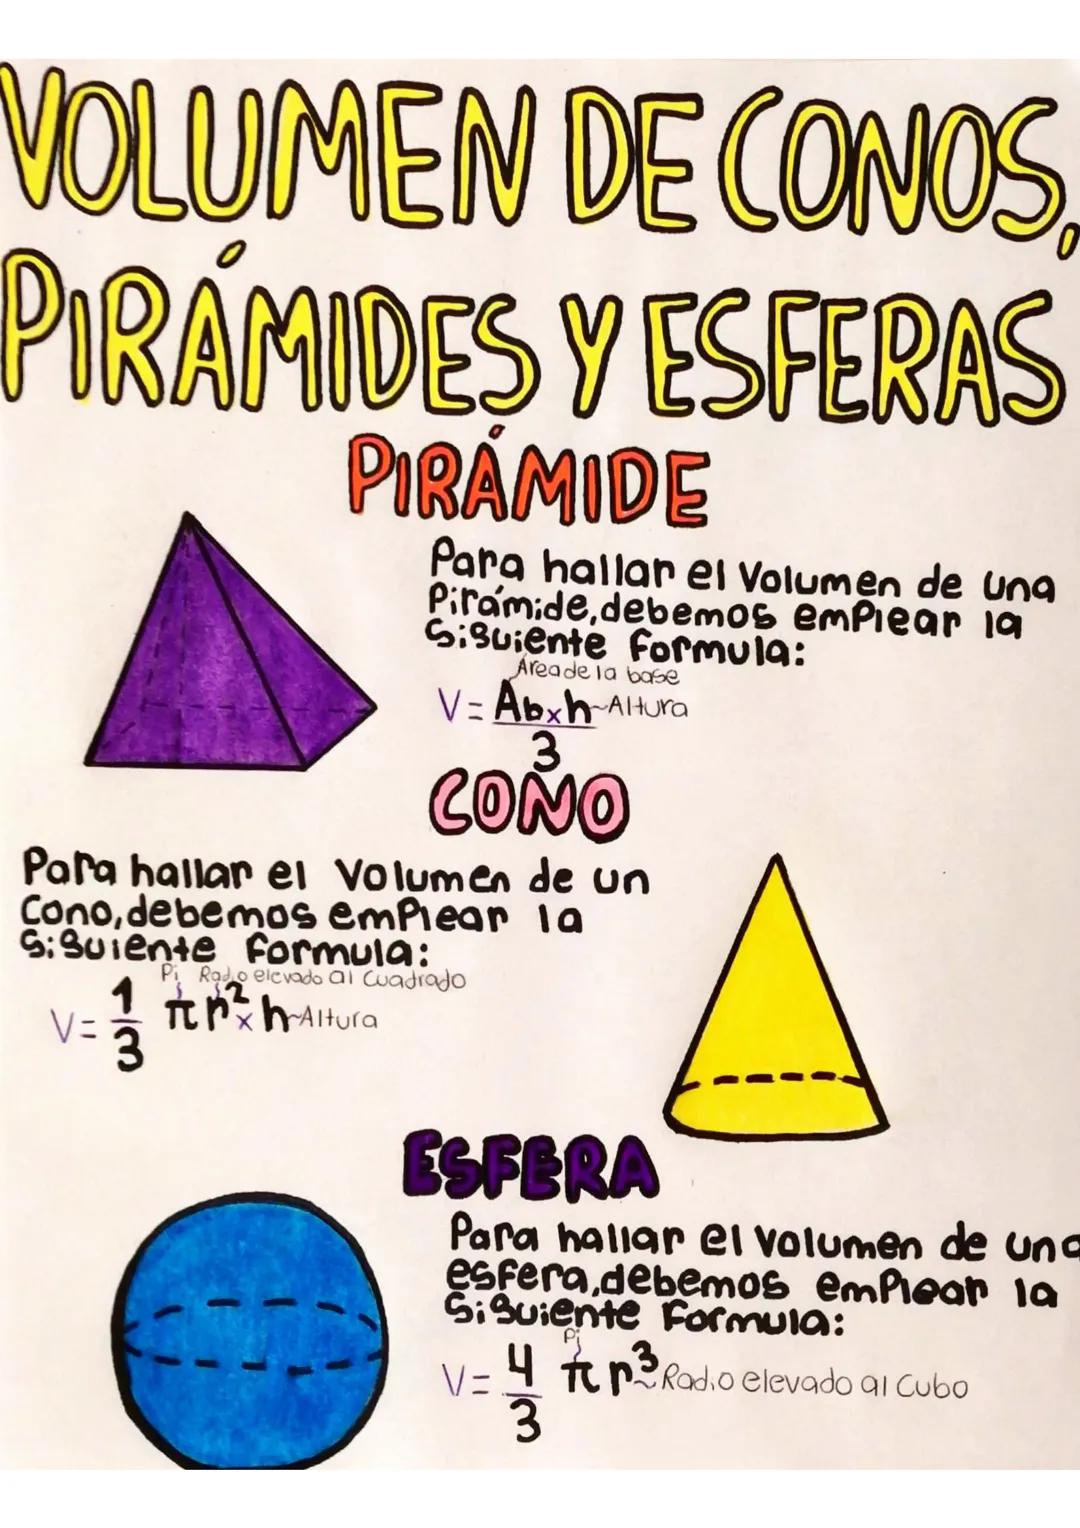 VOLUMEN DE CONOS,
PIRÁMIDES Y ESFERAS
PIRÁMIDE
Para hallar el Volumen de una
Pirámide, debemos emplear la
siguiente formula:
Área de la base
V = Ab x h ~ Altura
3
CONO
Para hallar el Volumen de un
Cono, debemos emplear la
siguiente formula:
Pi Radio elevado al Cuadrado
V = 1/3 π r² x h ~ Altura
ESFERA
Para hallar el volumen de una
esfera, debemos emplear la
siguiente formula:
Pi
V = 4/3 π r³ ~ Radio elevado al Cubo